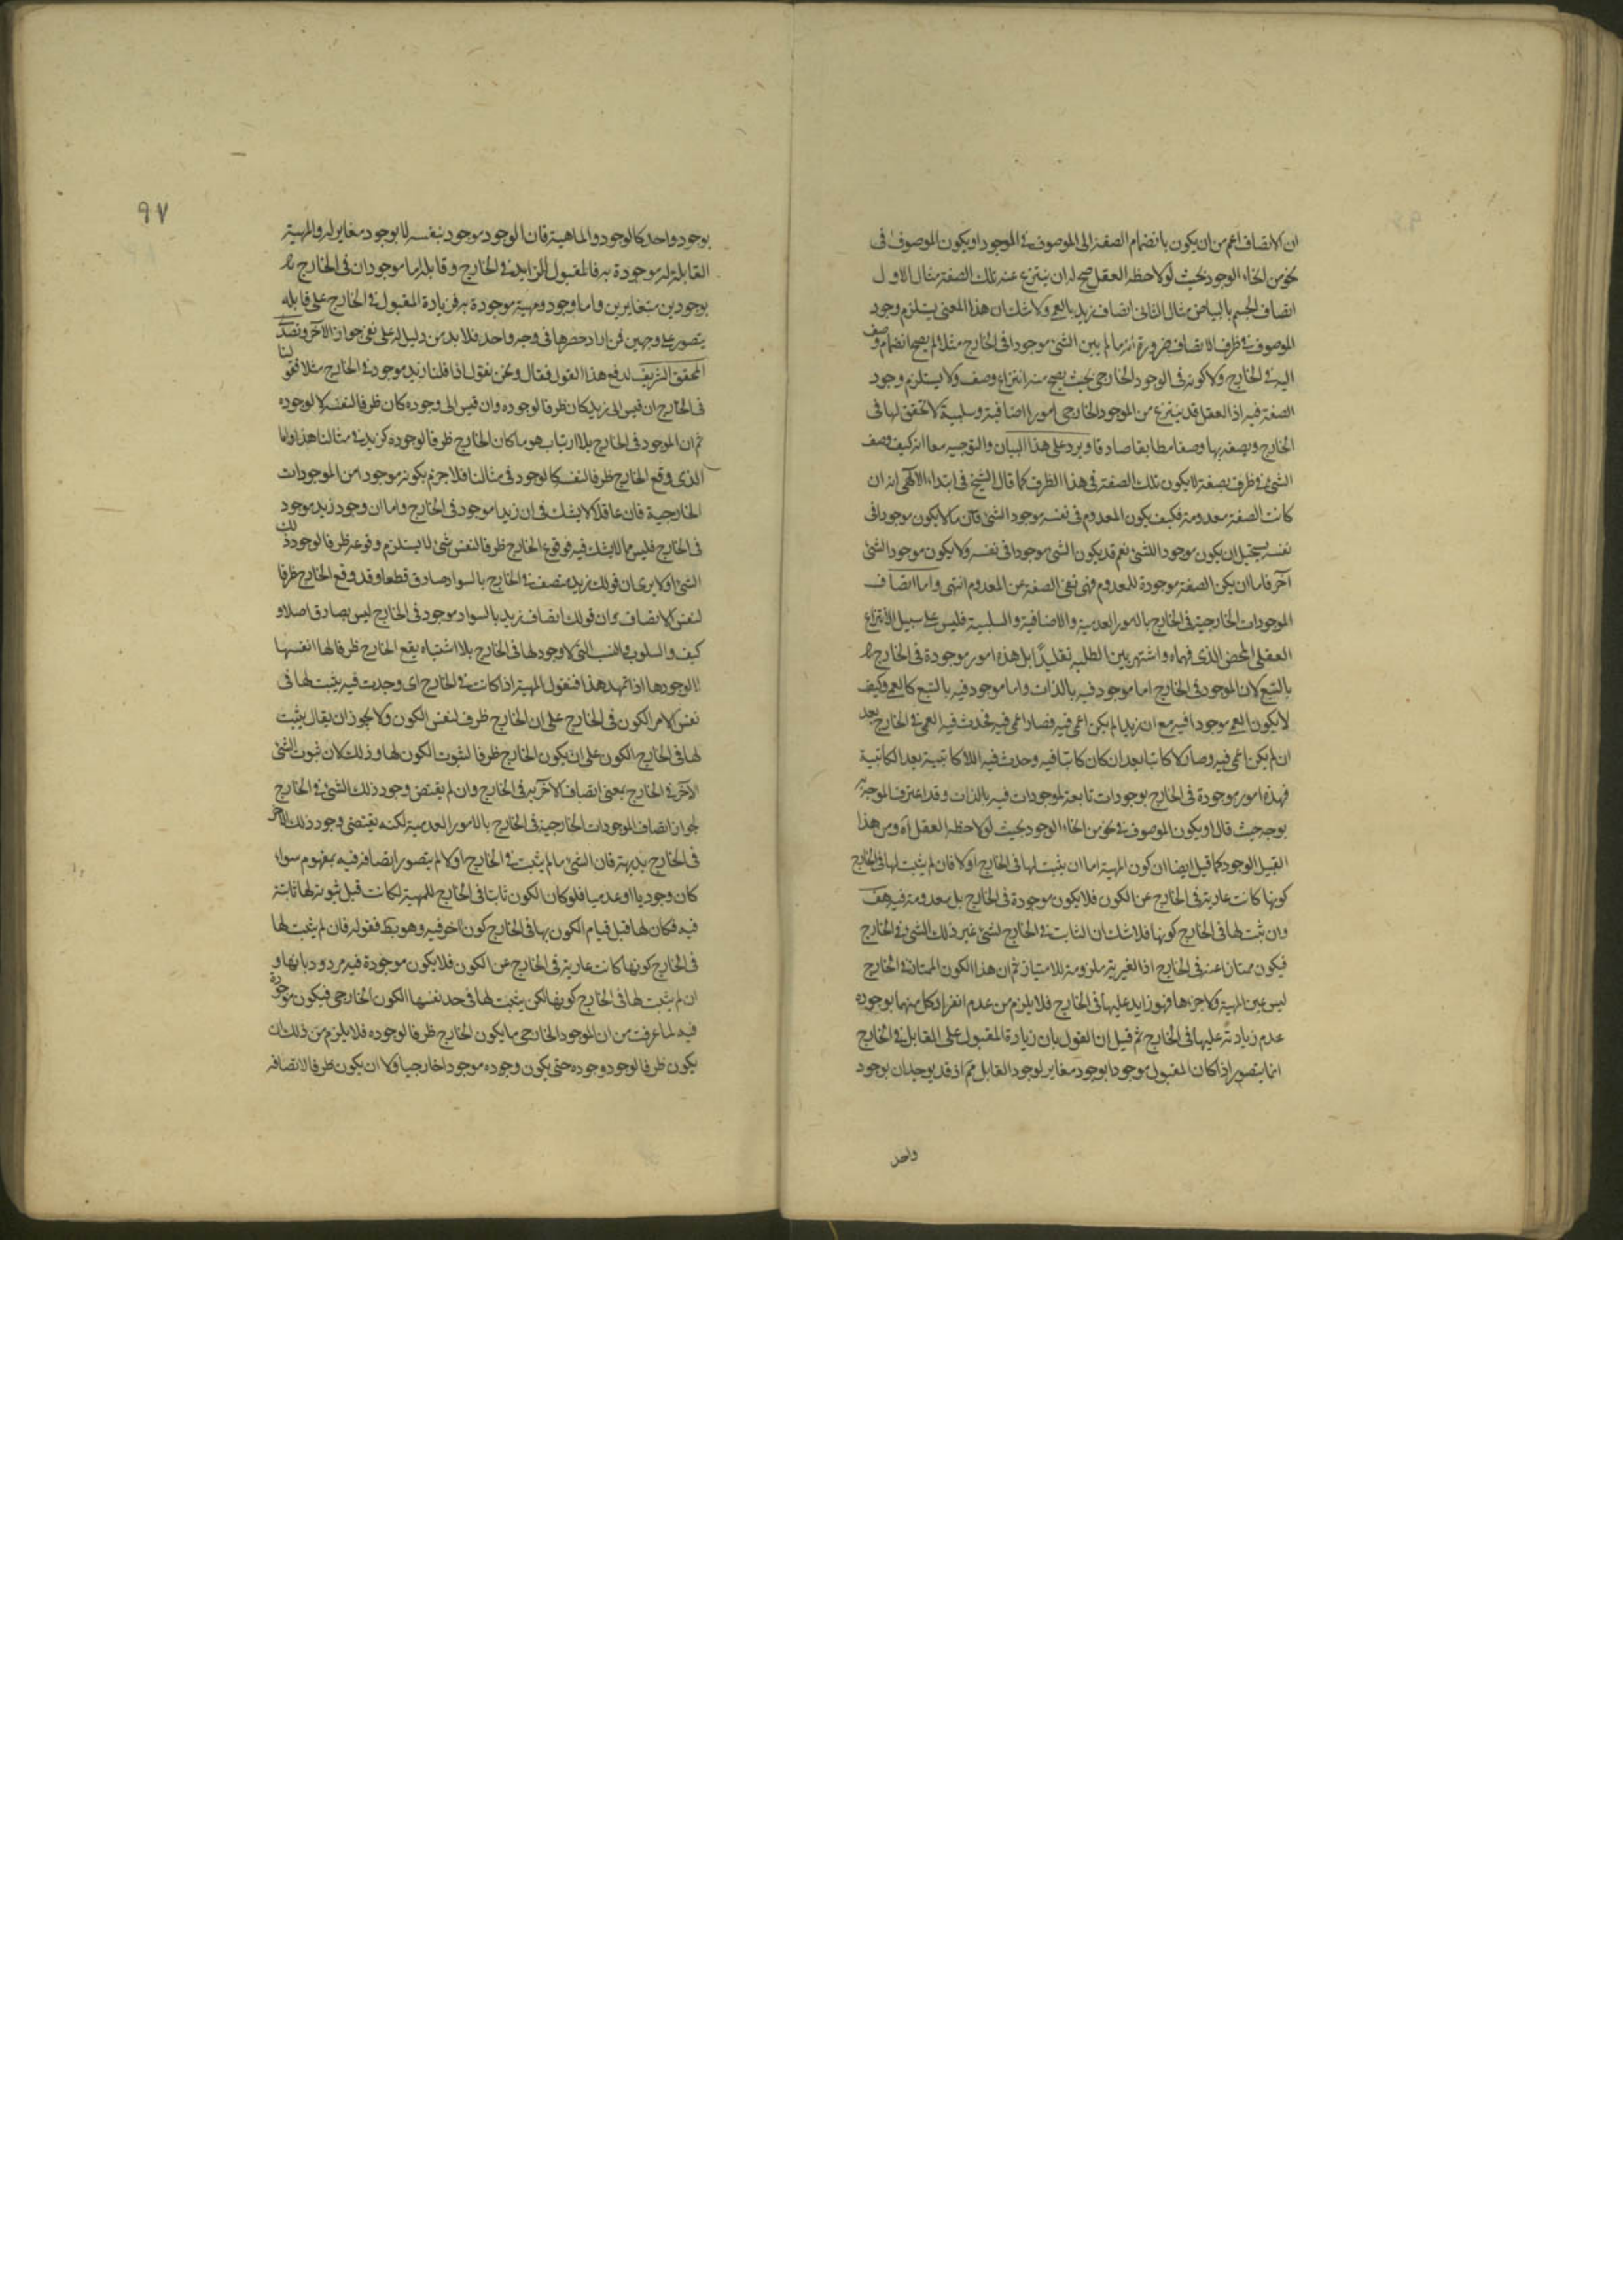 ان الاتصاف اعم من ان يكون بانضمام الصفة الى الموصوف في الموجود او يكون الموصوف في
نحو من انحاء الوجود بحيث لو لاحظه العقل صح له ان ينتزع عنه تلك الصفة مثال الاول
اتصاف الجسم بالبياض مثال الثاني اتصاف زيد بالعمى ولا شك ان هذا المعنى يستلزم وجود
الموصوف في ظرف الاتصاف ضرورة انه ما لم يبين الشئ موجودا في الخارج مثلا لم يصح انضمام وصف
اليه في الخارج ولا كونه في الوجود الخارجي بحيث يصح منه انتزاع وصف ولا يستلزم وجود
الصفة فيه اذ العقل قد ينتزع من الموجود الخارجي امورا اضافية وسلبية لا تحقق لها في
الخارج ويصفه بها وصفا مطابقا صادقا ويرد على هذا البيان والتوجيه معا انه كيف وصف
الشئ في ظرف بصفة لا يكون تلك الصفة في هذا الظرف كما قال الشيخ في ابتداء الآلهى انه ان
كانت الصفة معدومة فكيف يكون المعدوم في نفسه موجود الشئ فان ما لا يكون موجودا في
نفسه يستحيل ان يكون موجودا للشئ نعم قد يكون الشئ موجودا في نفسه ولا يكون موجود الشئ
آخر فاما ان يكن الصفة موجودة للمعدوم فهى نفى الصفة عن المعدوم انتهى واما اتصاف
الموجودات الخارجية في الخارج بالامور العدمية والاضافية والسلبية فليس على سبيل الانتزاع
العقلى المحض الذى فهماه واشتهر بين الطلبه تقليدا بل هذه امور موجودة في الخارج
بالتبع لان الموجود في الخارج اما موجود فيه بالذات واما موجود فيه بالتبع كالعمى وكيف
لا يكون العمى موجودا فيه مع ان زيدا لم يكن اعمى فيه فصار اعمى فيه فحدث فيه العمى في الخارج بعد
ان لم يكن اعمى فيه وصار لا كاتبا بعد ان كان كاتبا فيه وحدث فيه اللا كاتبية بعد الكاتبية
فهذه امور موجودة في الخارج بوجودات تابعة لموجودات فيه بالذات وقد اعترف الموجه به
بوجه حيث قال او يكون الموصوف في نحو من انحاء الوجود بحيث لو لاحظه العقل آه ومن هذا
القبيل الوجود كما قيل ايضا ان كون المهية اما ان يثبت لها في الخارج او لا فان لم يثبت لها في الخارج
كونها كانت عارية في الخارج عن الكون فلا يكون موجودة في الخارج بل معدومة فيه هف
وان ثبت لها في الخارج كونها فلا شك ان الثابت في الخارج لشئ غير ذلك الشئ في الخارج
فيكون ممتازا عنه في الخارج اذ الغيرية ملزومة للامتياز ثم ان هذا الكون الممتاز في الخارج
ليس عين المهية ولا جزءها فهو زايد عليها في الخارج فلا يلزم من عدم انفراد كل منهما بوجوده
عدم زيادته عليها في الخارج ثم قيل ان القول بان زيادة المقبول على القابل في الخارج
انما يتصور اذا كان المقبول موجودا بوجود مغاير لوجود القابل مم اذ قد يوجدان بوجود
واحد
٩٧
بوجود واحد كالوجود والماهية فان الوجود موجود بنفسه لا بوجود مغاير له والمهية
القابلة له موجودة به فالمقبول الزايد في الخارج وقابله اما موجودان في الخارج
بوجودين متغايرين واما وجود ومهية موجودة به فزيادة المقبول في الخارج على قابله
يتصور على وجهين فمن اراد حصرها في وجه واحد فلا بد من دليل له على نفى جواز الآخر وتصدى
المحقق الشريف لدفع هذا القول فقال ونحن نقول اذا قلنا زيد موجود في الخارج مثلا فقولنا
في الخارج ان قيس الى زيد كان ظرفا لوجوده وان قيس الى وجوده كان ظرفا لنفسه لا لوجوده
ثم ان الموجود في الخارج بلا ارتياب هو ما كان الخارج ظرفا لوجوده كزيد في مثالنا هذا واما
الذى وقع الخارج ظرفا لنفسه كالوجود في مثالنا فلا جزم بكونه موجودا من الموجودات
الخارجية فان عاقلا لا يشك في ان زيدا موجود في الخارج واما ان وجود زيد موجود
في الخارج فليس مما لا يشك فيه فوقوع الخارج ظرفا لنفس شئ لا يستلزم وقوعه ظرفا لوجود ذلك
الشئ او لا يرى ان قولك زيد متصف في الخارج بالسواد صادق قطعا وقد وقع الخارج ظرفا
لنفس الاتصاف وان قولك اتصاف زيد بالسواد موجود في الخارج ليس بصادق اصلا و
كيف والسلوب والنسب التى لا وجود لها في الخارج بلا اشتباه يقع الخارج ظرفا لها انفسها
لا لوجودها اذا تمهد هذا فنقول المهية اذا كانت في الخارج اى وجدت فيه يثبت لها في
نفس الامر الكون في الخارج على ان الخارج ظرف لنفس الكون ولا يجوز ان يقال يثبت
لها في الخارج الكون على ان يكون الخارج ظرفا لثبوت الكون لها وذلك لان ثبوت الشئ
الآخر في الخارج بمعنى اتصاف الآخر به في الخارج وان لم يقتض وجود ذلك الشئ في الخارج
لجواز اتصاف الموجودات الخارجية في الخارج بالامور العدمية لكنه يقتضى وجود ذلك الآخر
في الخارج بديهة فان الشئ ما لم يثبت في الخارج اولا لم يتصور اتصافه فيه بمفهوم سواء
كان وجوديا او عدميا فلو كان الكون ثابتا في الخارج للمهية لكانت قبل ثبوته لها ثابتة
فيه فكان لها قبل قيام الكون بها في الخارج كون آخر فيه وهو بط فقوله فان لم يثبت لها
في الخارج كونها كانت عارية في الخارج عن الكون فلا يكون موجودة فيه مردود بانها و
ان لم يثبت لها في الخارج كونها لكن يثبت لها في حد نفسها الكون الخارجى فيكون موجودة
فيه لما عرفت من ان الموجود الخارجى ما يكون الخارج ظرفا لوجوده فلا يلزم من ذلك ان
يكون ظرفا لوجود وجوده حتى يكون وجوده موجودا خارجيا ولا ان يكون ظرفا لاتصافه